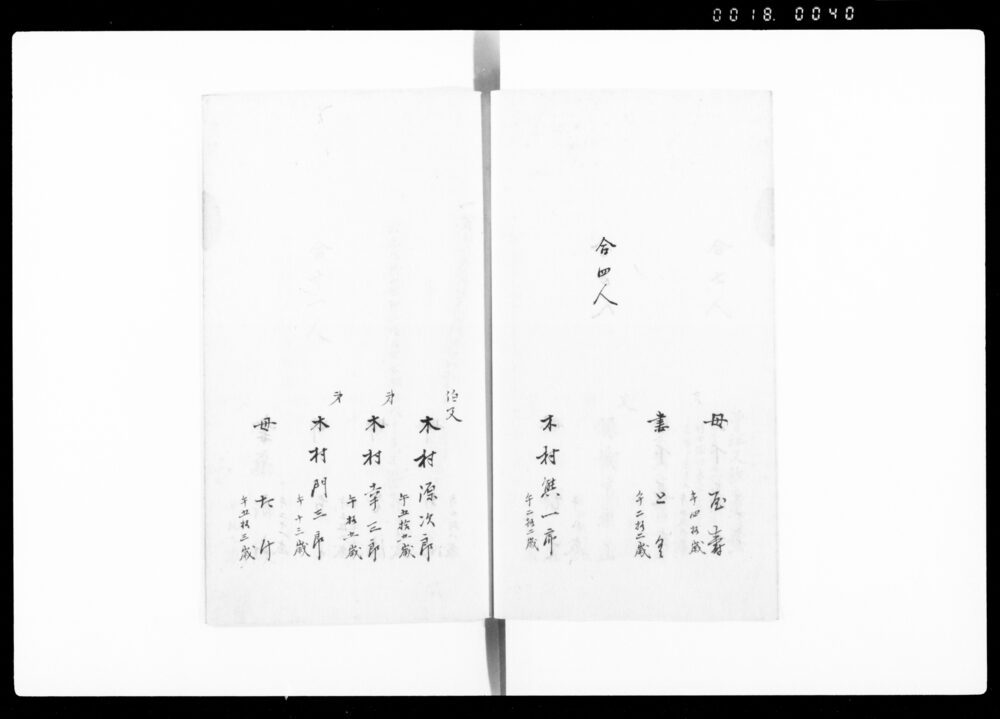 0018. 0040
母
午四拾歳
妻
午二拾二歳
合四人
木村熊一郎
午二拾二歳
伯父
木村源次郎
午五拾五歳
弟
木村幸三郎
午拾五歳
弟
木村門三郎
午十三歳
母
午五拾三歳